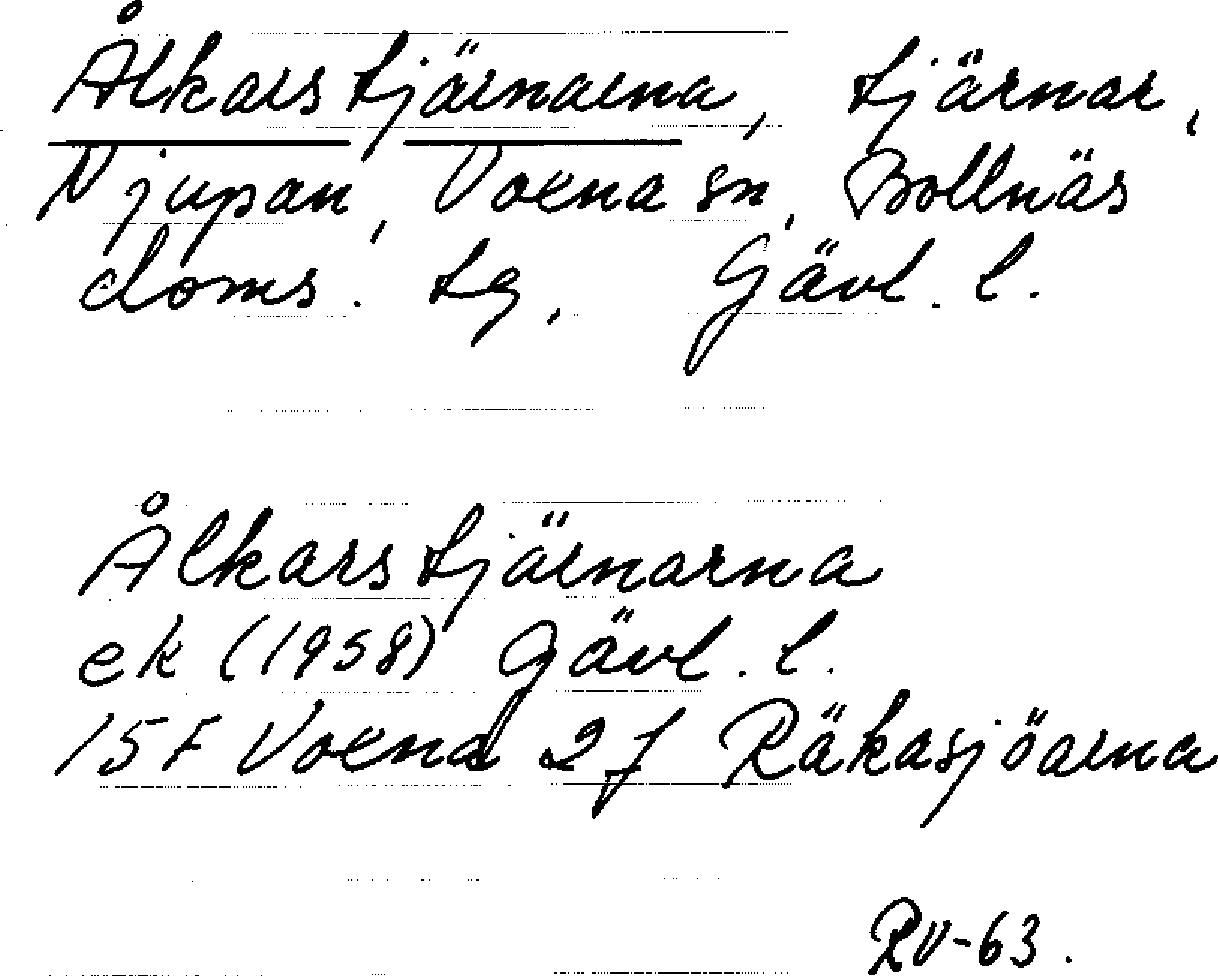 Ålkarstjärnarna, tjärnar,
Njupan, Voxna sn, Bollnäs
doms. tg, Gävl. l.
Ålkarstjärnarna
ek (1958) Gävl. l.
15F Voxna 2 j Räkasjöarna
RV-63.